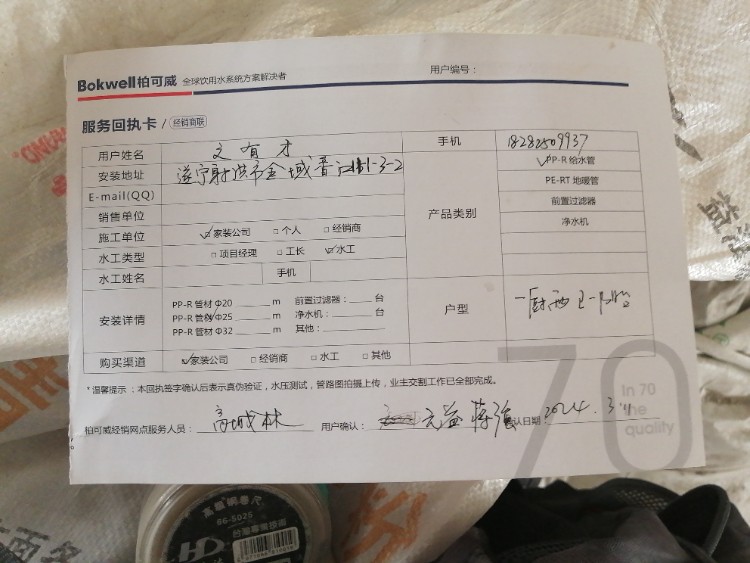 Bokwell柏可威 全球饮用水系统方案解决者 用户编号：
服务回执卡 / 经销商联
用户姓名 文有才 手机 18282509937
安装地址 遂宁射洪市金域晋江1-3-2
E-mail(QQ)
销售单位
产品类别
PP-R 给水管
PE-RT 地暖管
前置过滤器
净水机
施工单位 家装公司 个人 经销商
水工类型 项目经理 工长 水工
水工姓名 手机
安装详情
PP-R 管材 Φ20 m 前置过滤器： 台
PP-R 管材 Φ25 m 净水机： 台
PP-R 管材 Φ32 m 其他：
户型 一厨两卫一阳台
购买渠道 家装公司 经销商 水工 其他
*温馨提示：本回执签字确认后表示真伪验证，水压测试，管路图拍摄上传，业主交割工作已全部完成。
柏可威经销网点服务人员： 高城林 用户确认： 元益 蒋强 确认日期： 2024.3.11
70
In 70
the
quality
高級鋼卷尺
86-5025